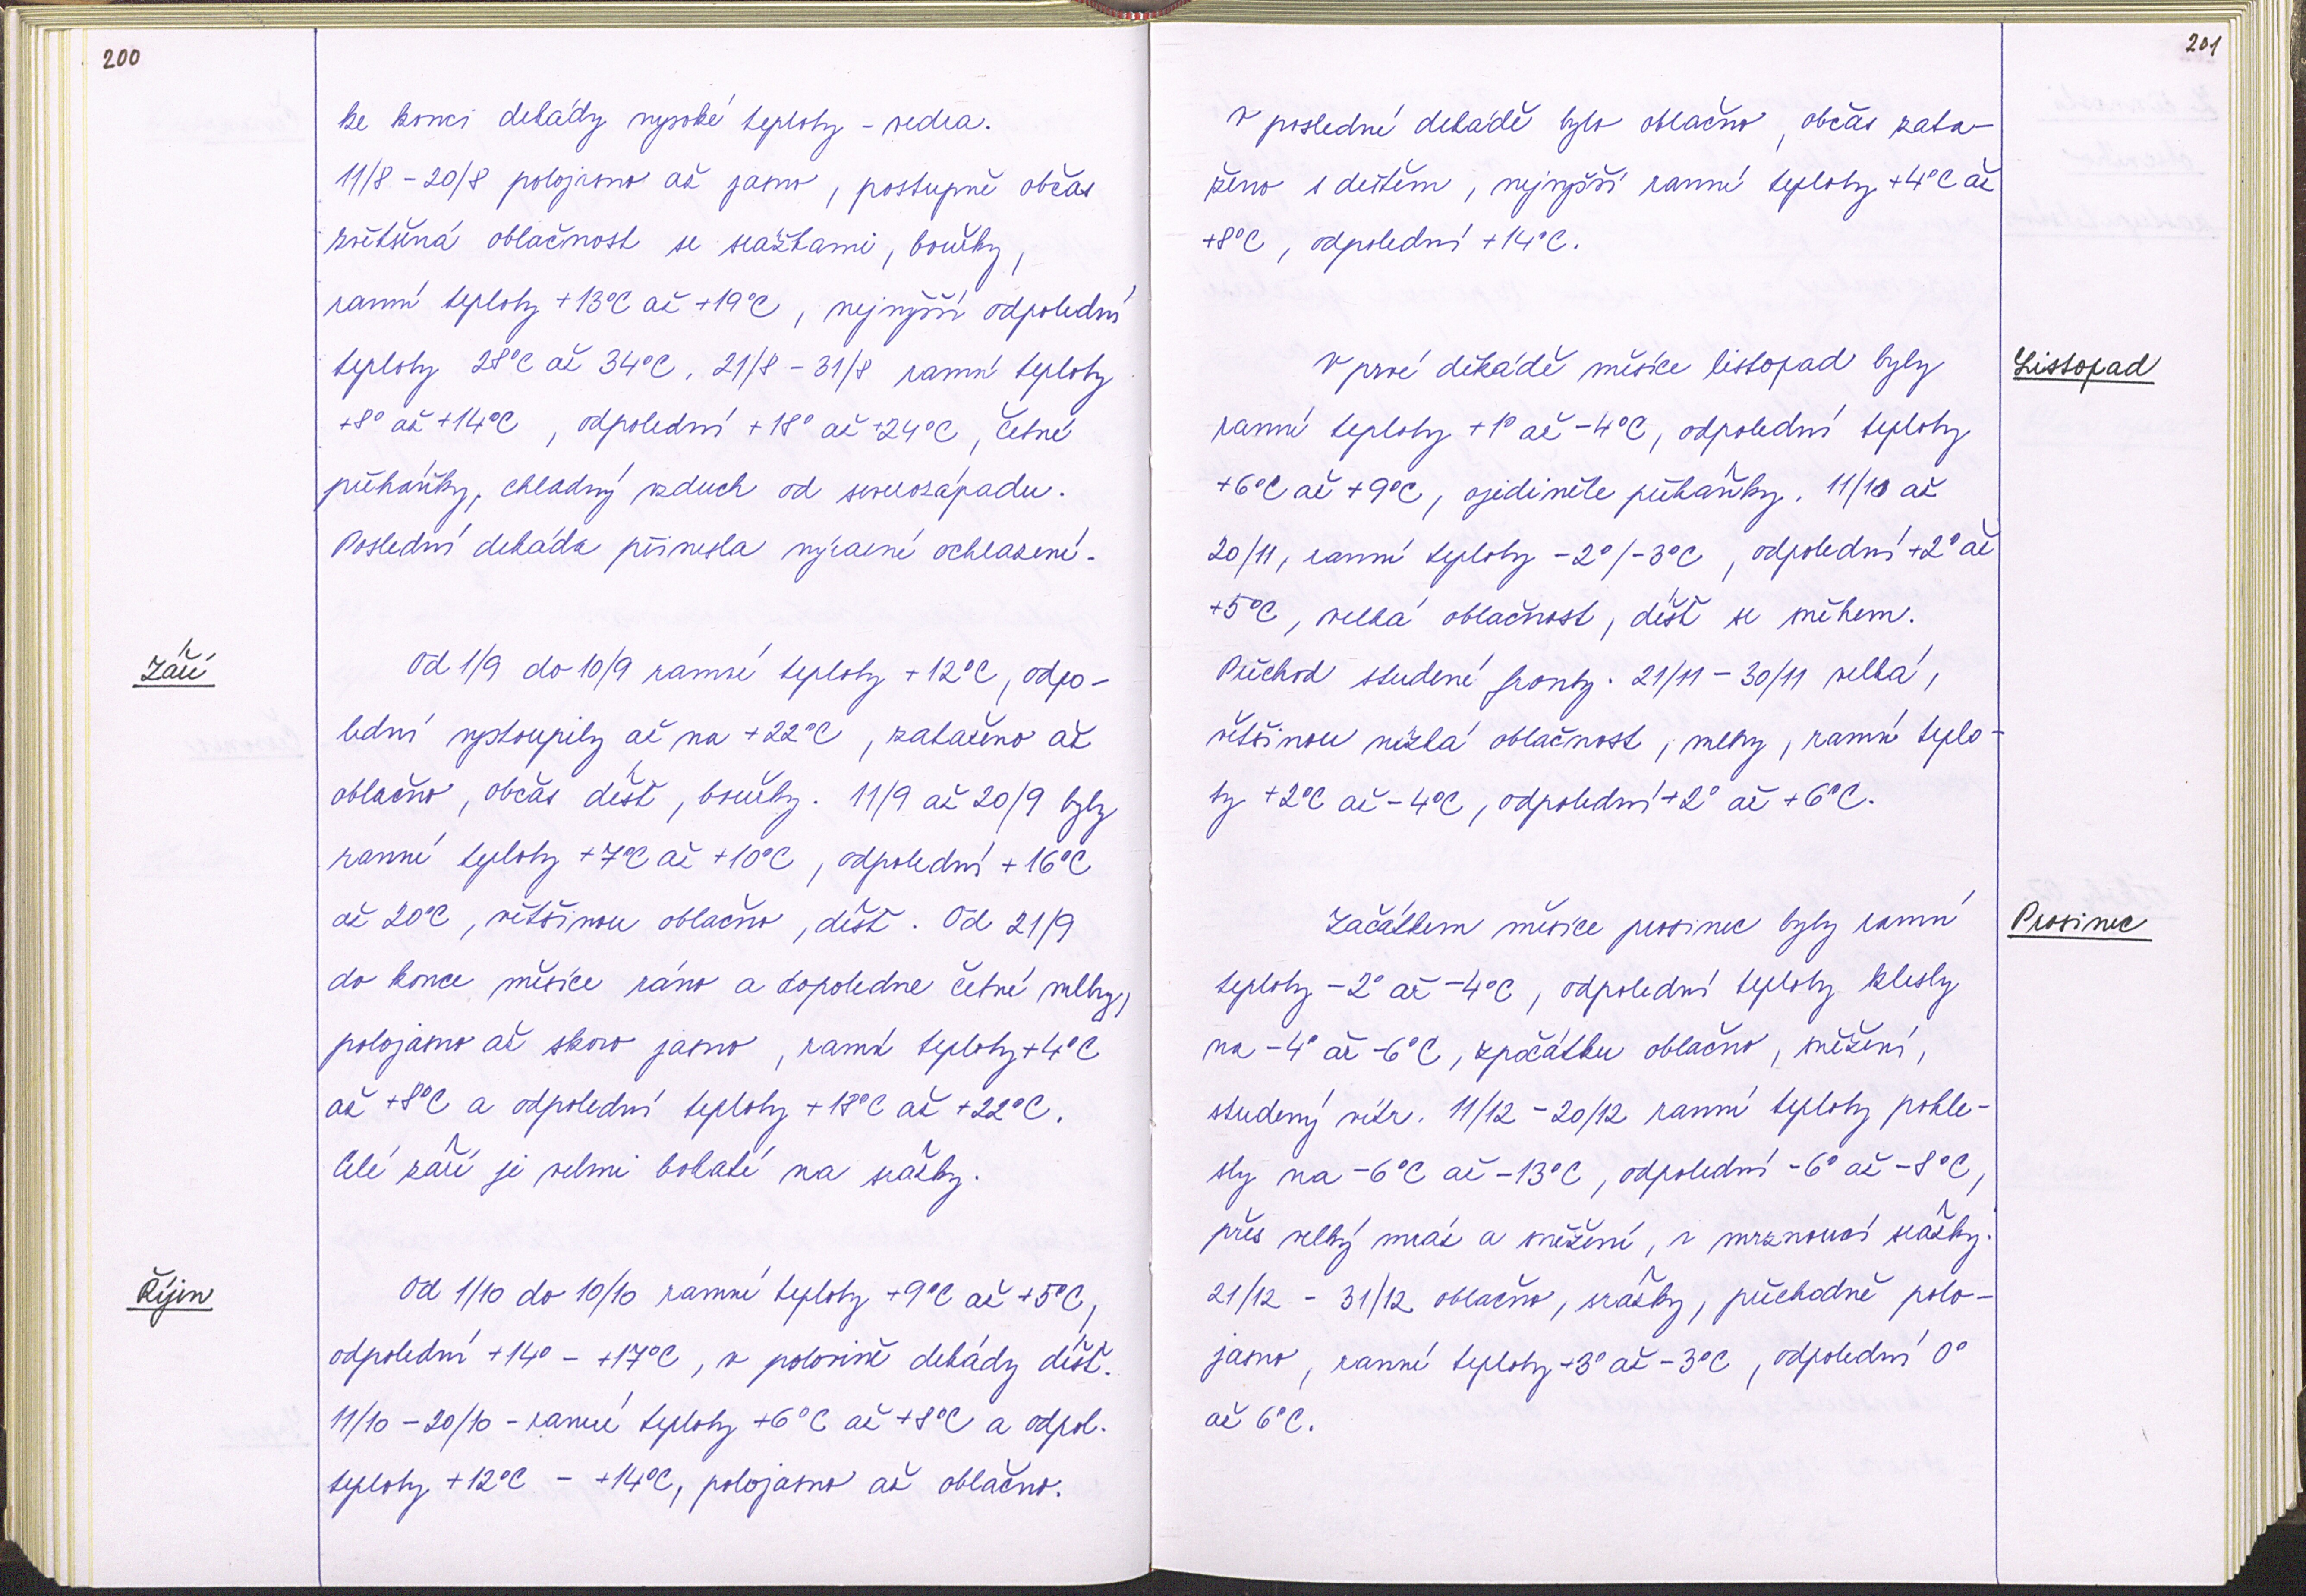 200
ke konci dekády vysoké teploty - vedra.
11/8 - 20/8 polojasno až jasno, postupně občas
zvětšená oblačnost se srážkami, bouřky,
ranní teploty +13°C až +19°C, nejvyšší odpolední
teploty 28°C až 34°C. 21/8 - 31/8 ranní teploty
+8° až +14°C, odpolední +18° až +24°C, četné
přeháňky, chladný vzduch od severozápadu.
Poslední dekáda přinesla výrazné ochlazení.
Září
Od 1/9 do 10/9 ranní teploty +12°C, odpo-
lední vystoupily až na +22°C, zataženo až
oblačno, občas déšť, bouřky. 11/9 až 20/9 byly
ranní teploty +7°C až +10°C, odpolední +16°C
až 20°C, většinou oblačno, déšť. Od 21/9
do konce měsíce ráno a dopoledne četné mlhy,
polojasno až skoro jasno, ranní teploty +4°C
až +8°C a odpolední teploty +18°C až +22°C.
Celé září je velmi bohaté na srážky.
Říjen
Od 1/10 do 10/10 ranní teploty +9°C až +5°C,
odpolední +14° - +17°C, v polovině dekády déšť.
11/10 - 20/10 - ranní teploty +6°C až +8°C a odpol.
teploty +12°C - +14°C, polojasno až oblačno.
201
V poslední dekádě bylo oblačno, občas zata-
ženo s deštěm, nejvyšší ranní teploty +4°C až
+8°C, odpolední +14°C.
Listopad
V prvé dekádě měsíce listopad byly
ranní teploty +1° až -4°C, odpolední teploty
+6°C až +9°C, ojediněle přeháňky. 11/10 až
20/11, ranní teploty -2°/-3°C, odpolední +2° až
+5°C, velká oblačnost, déšť se sněhem.
Přechod studené fronty. 21/11 - 30/11 velká,
většinou nízká oblačnost, mlhy, ranní teplo-
ty +2°C až -4°C, odpolední +2° až +6°C.
Prosinec
Začátkem měsíce prosinec byly ranní
teploty -2° až -4°C, odpolední teploty klesly
na -4° až -6°C, zpočátku oblačno, sněžení,
studený vítr. 11/12 - 20/12 ranní teploty pokle-
sly na -6°C až -13°C, odpolední -6° až -8°C,
přes velký mráz a sněžení, i mrznoucí srážky.
21/12 - 31/12 oblačno, srážky, přechodně polo-
jasno, ranní teploty +3° až -3°C, odpolední 0°
až 6°C.